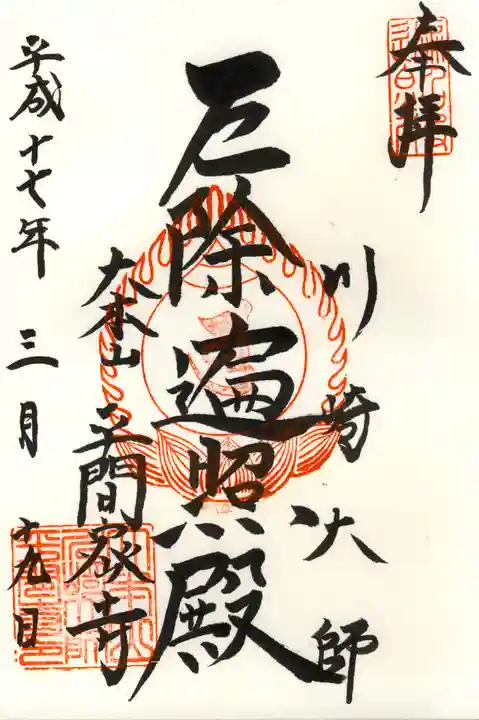 奉拝
川崎大師
厄除遍照殿
大本山
平間寺
平成十七年三月十九日